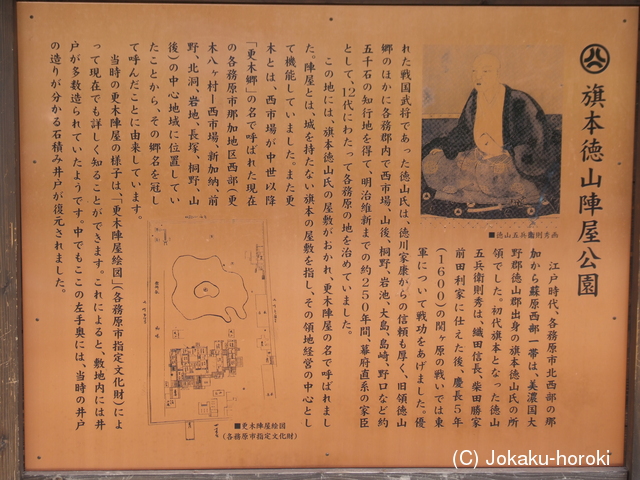 旗本徳山陣屋公園
江戸時代、各務原市北西部の那
加から蘇原西部一帯は、美濃国大
野郡徳山郷出身の旗本徳山氏の所
領でした。初代旗本となった徳山
五兵衛則秀は、織田信長、柴田勝家
前田利家に仕えた後、慶長5年
(1600)の関ヶ原の戦いでは東
軍について戦功をあげました。優
れた戦国武将であった徳山氏は、徳川家康からの信頼も厚く、旧領徳山
郷のほかに各務郡内で西市場、山後、桐野、岩地、大島、島崎、野口など約
五千石の知行地を得て、明治維新までの約250年間、幕府直系の家臣
として、12代にわたって各務原の地を治めていました。
この地には、旗本徳山氏の屋敷がおかれ、更木陣屋の名で呼ばれまし
た。陣屋とは、城を持たない旗本の屋敷を指し、その領地経営の中心とし
て機能していました。また更
木とは、西市場が中世以降
「更木郷」の名で呼ばれた現在
の各務原市那加地区西部(更
木八ヶ村ー西市場、新加納、前
野、北洞、岩地、長塚、桐野、山
後)の中心地域に位置してい
たことから、その郷名を冠し
て呼んだことに由来しています。
当時の更木陣屋の様子は、「更木陣屋絵図」(各務原市指定文化財)によ
って現在でも詳しく知ることができます。これによると、敷地内には井
戸が多数造られていたようです。中でもここの左手奥には、当時の井戸
の造りが分かる石積み井戸が復元されました。
■徳山五兵衛則秀画
■更木陣屋絵図
(各務原市指定文化財)
(C) Jokaku-horoki